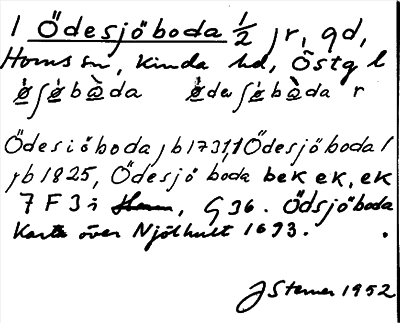 1 Ödesjöboda 1/2 jr, gd,
Horns sn, Kinda hd, Östg l
Ödesiöboda jb 1731, 1 Ödesjöboda 1
jb 1825, Ödesjö boda bek ek, ek
7 F 3 i, G 36. Ödsjöboda
Karta över Njölhult 1693.
J Sterner 1952